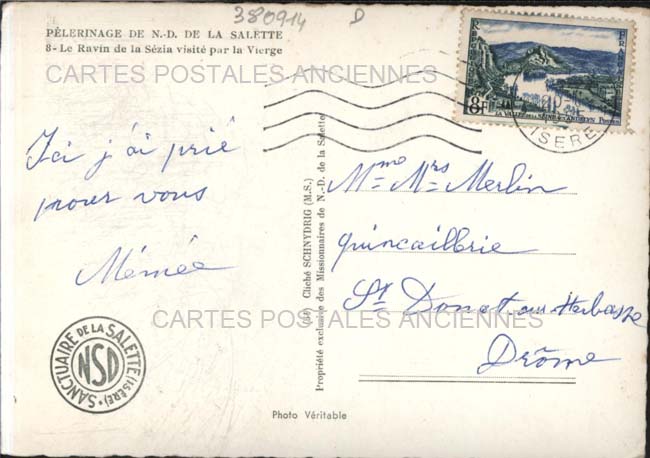 380914 D
PÈLERINAGE DE N.-D. DE LA SALETTE
8 - Le Ravin de la Sézia visité par la Vierge
CARTES POSTALES ANCIENNES
REPUBLIQUE
FRANÇAISE
8F
LA VALLÉE DE LA SEINE AUX ANDELYS
POSTES
ISERE
Ici j'ai prié
pour vous
Mémée
Cliché SCHNYDRIG (M.S.)
Propriété exclusive des Missionnaires de N.-D. de la Salette
Mme Mrs Merlin
quincaillerie
St Donat sur Herbasse
Drôme
CARTES POSTALES ANCIENNES
SANCTUAIRE DE LA SALETTE (ISÈRE)
NSD
Photo Véritable